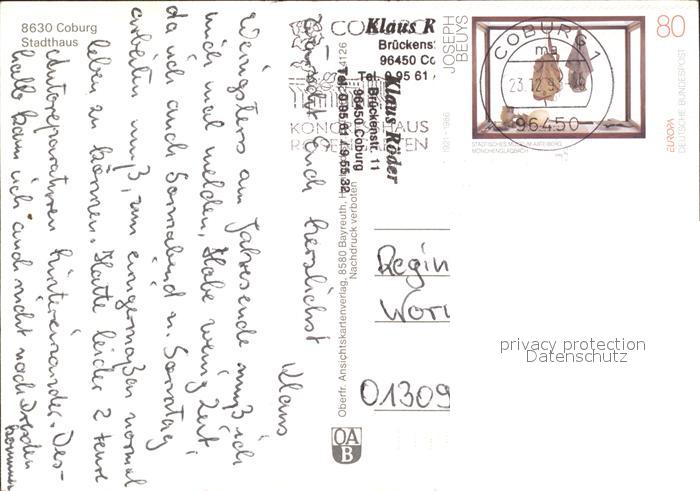 8630 Coburg
Stadthaus
Wenigstens am Jahresende muß ich
mich mal melden, Habe wenig Zeit
da ich auch Sonnabend u. Sonntag
arbeiten muß, um einigermaßen normal
leben zu können. Hatte leider 2 teure
Autoreparaturen hintereinander. Des-
halb kam ich auch nicht nach Dresden
kommen
Euch herzlichst
Klaus
4126
Oberfr. Ansichtskartenverlag, 8580 Bayreuth,
Nachdruck verboten
OA
B
Klaus R
Brückens
96450 Co
Tel. 0 95 61
Klaus Röder
Brückenstr. 11
96450 Coburg
Tel. 0 95 61 / 9 55 32
CO
KONGRESSHAUS
ROSENGARTEN
COBURG 1
ma
23.12.93
96450
JOSEPH
BEUYS
1921 - 1986
80
STÄDTISCHES MUSEUM ABTEIBERG
MÖNCHENGLADBACH
EUROPA
DEUTSCHE BUNDESPOST
Regin
Worm
01309
privacy protection
Datenschutz